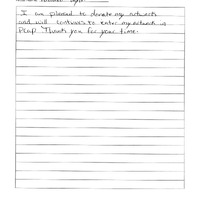 I am pleased to donate my artwork
and will continue to enter my artwork in
PCAP. Thank you for your time.